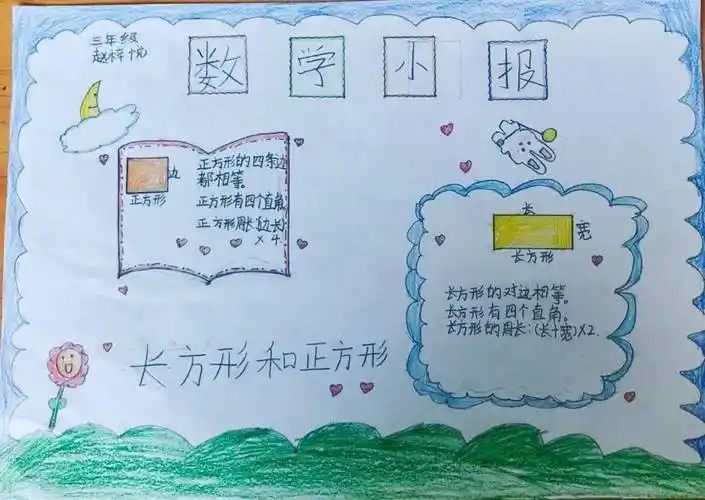 三年级
赵梓悦
数学小报
正方形的四条边
都相等。
边
正方形
正方形有四个直角
正方形周长:边长
×4
长
宽
长方形
长方形的对边相等。
长方形有四个直角。
长方形的周长:(长+宽)×2.
长方形和正方形